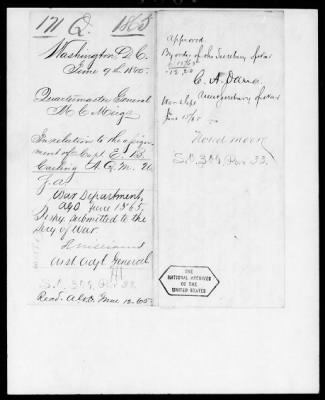 171 Q. 1865
Washington, D.C.
June 9th 1865.
Quartermaster General
M. C. Meigs
In relation to the assign-
ment of Capt E. B.
Carling A. Q. M. U
War Department,
AGO June 1865.
Respy. submitted to the
Secy of War.
Asst Adjt General
S.O. 304 Par 33.
Recd. A.G.O. June 12. 65
Approved
By order of the Secretary of War
C. A. Dana
Asst Secretary of War
War Dept
June 15/65
S.O. 304 Par 33.
THE
NATIONAL ARCHIVES
OF THE
UNITED STATES